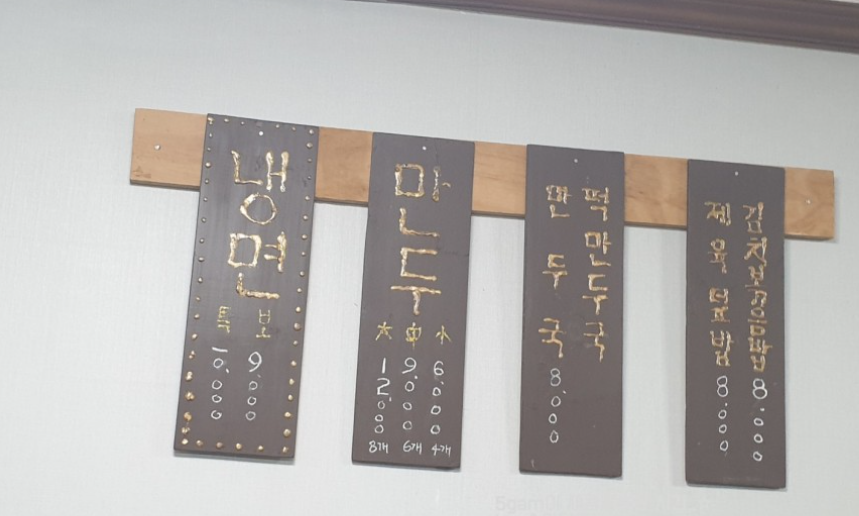 냉면
특 10.000
평 9.000
만두
大 12.000 8개
中 9.000 6개
小 6.000 4개
만두국 8.000
떡만두국
제육덮밥 8.000
김치볶음밥 8.000